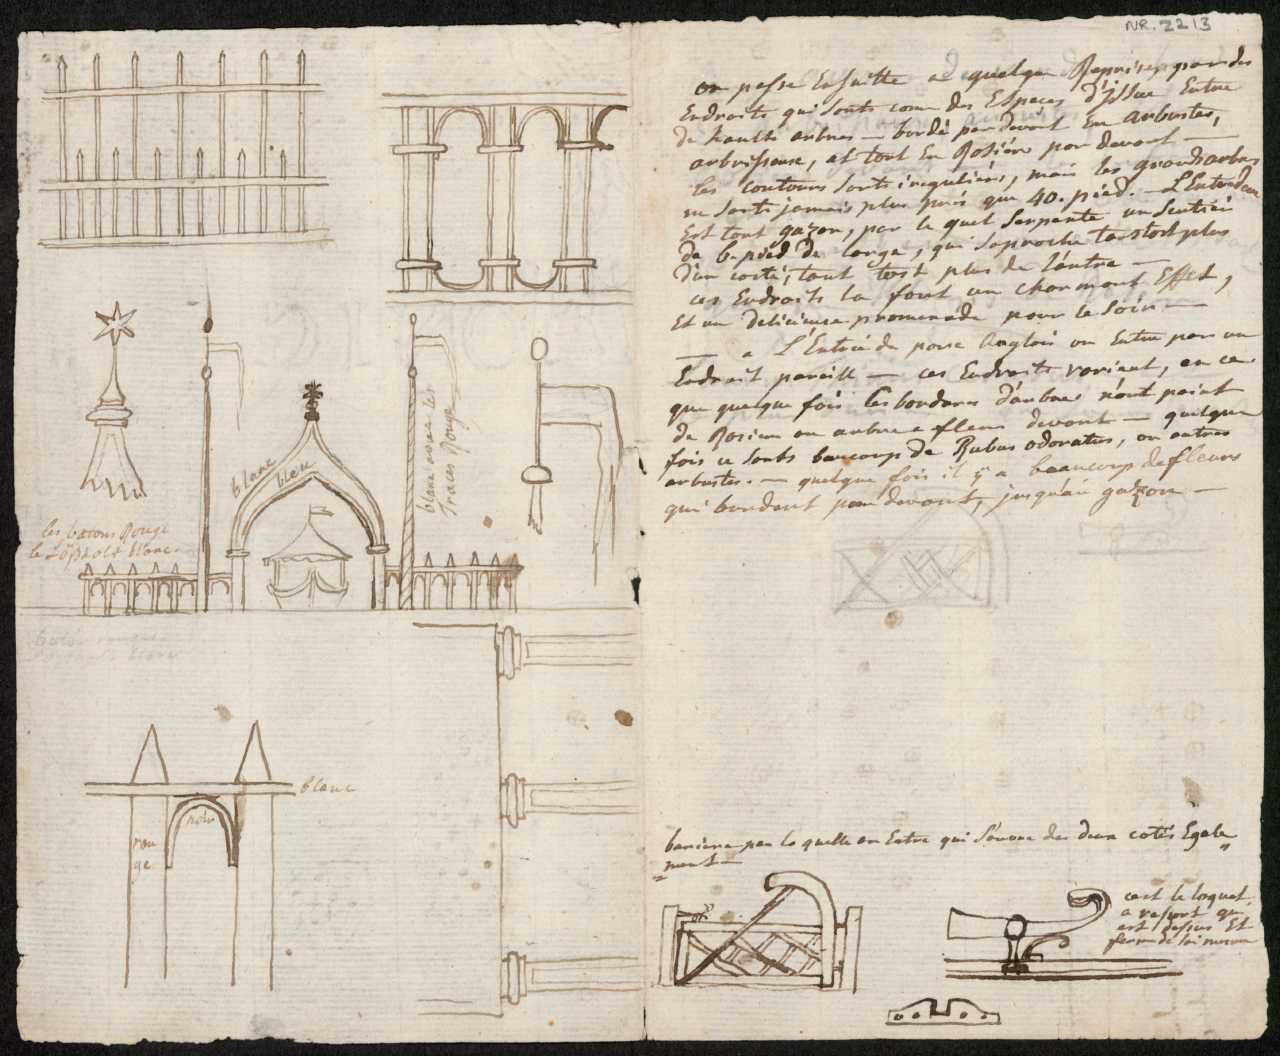 NR. 2213
on passe Ensuitte a quelque Reprises par des
Endroits qui sonts come des Espaces d'jssue Entre
de hauts arbres — bordé par devont En arbustes,
arbrisseaux, et tout En Rosiérs par devant —
les contours sonts irreguliérs, mais les grands arbres
ne sonts jamais plus prés que 40. pied. — L'Entredeux
Est tout gazon, par le quel Serpente un Sentiér
de 6. piéd de large, qui s'aproche tantost plus
d'un costé, tant tost plus de l'autre —
ces Endroits la font un charmant Effet,
Et un delicieuse promenade pour le Soir —
— a L'Entrée de parc Anglois on Entre par un
Endroit pareille — ces Endroits varient, en ce
que quelque fois les bordures d'arbres n'ont point
de Rosiers ou arbre a fleurs devont — quelque
fois ce sonts beaucoup de Rubus odoratus, ou autres
arbustes. — quelque fois il y a beaucoup de fleurs
qui bordent par devant, jusqu'au gazon —
blanc
bleu
blanc avec les
traces Rouge
les batons Rouge
le blanc
blanc
rou
ge
noir
bariere par la quelle on Entre qui s'ouvre des deux cotés Egale
ment —
cest le loquet
a resort qui
est dessus Et
ferme de lui meme